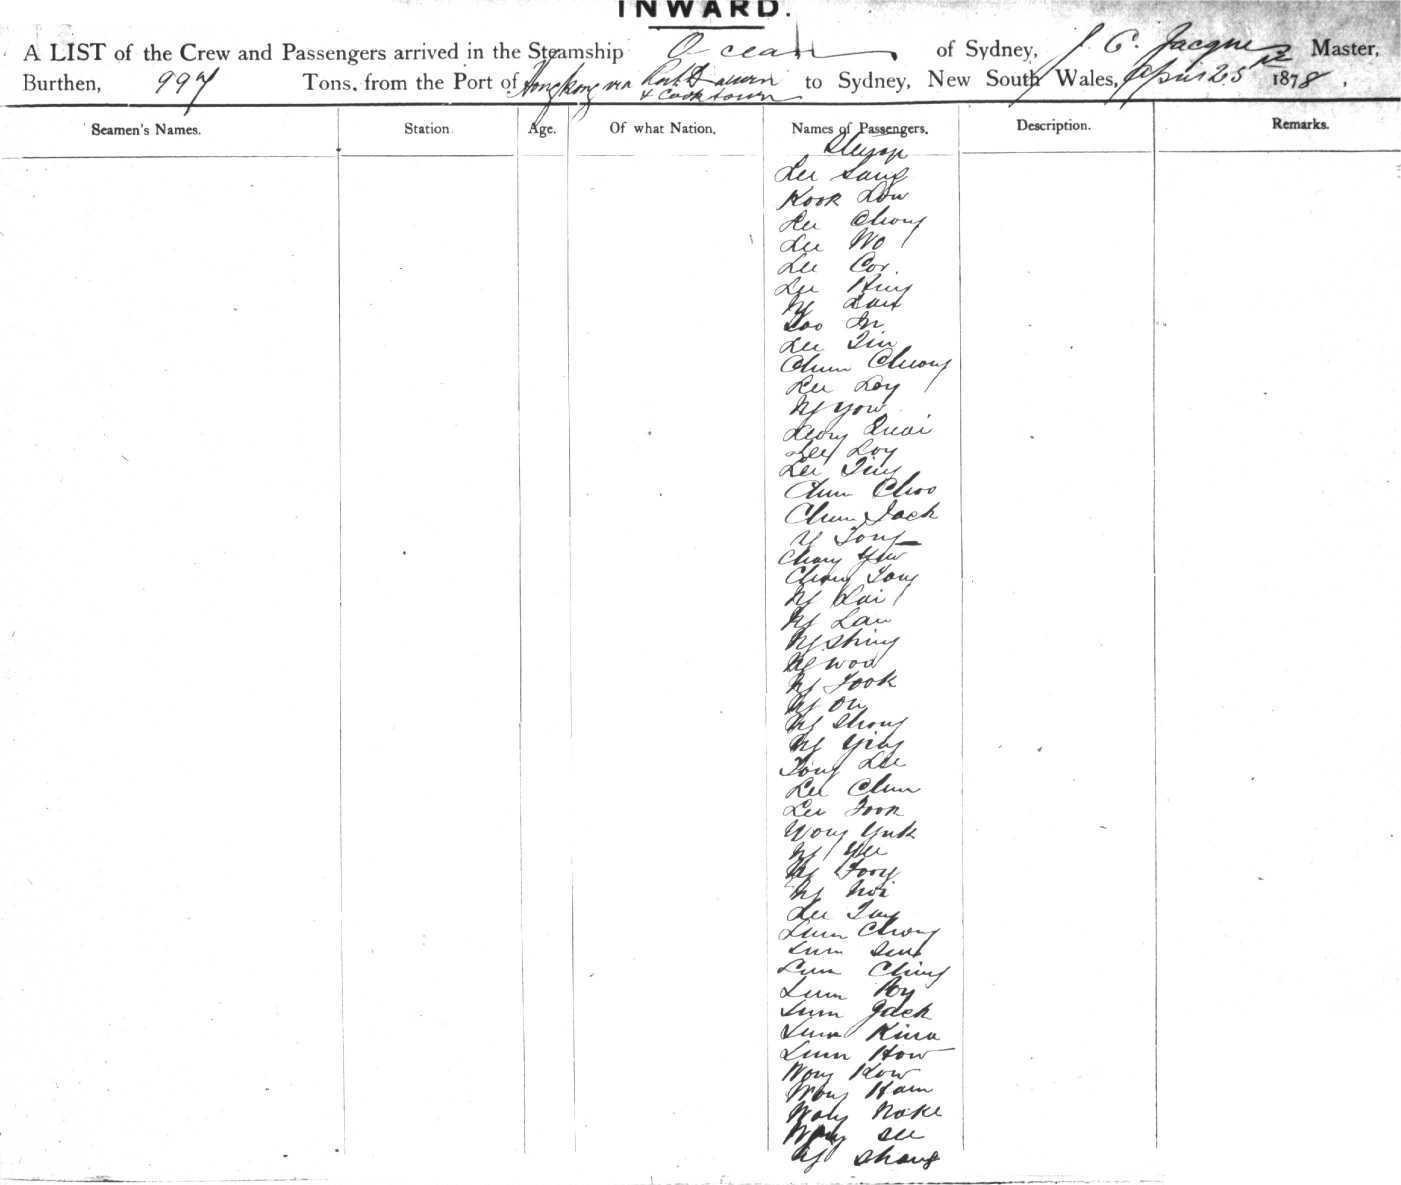 INWARD.
A LIST of the Crew and Passengers arrived in the Steamship Ocean of Sydney, J. C. Jacques Master,
Burthen, 997 Tons, from the Port of Hongkong via Port Darwin & Cooktown to Sydney, New South Wales, April 25th 1878,
Seamen's Names. Station Age. Of what Nation. Names of Passengers. Description. Remarks.
Lee Sang
Kook Low
Lee Chong
Lee Wo
Lee Coy
Lee King
Ng
Lee Tin
Chun Cheong
Lee Loy
Ng Yow
Leong Quai
Lee Loy
Lee Ting
Chun Choo
Chun Jack
Ng Tong
Chong Yew
Chong Tong
Ng Lai
Ng Lau
Ng Shing
Ng Woo
Ng Fook
Ng On
Ng Shong
Ng Ying
Tong Lee
Lee Chun
Lee Foon
Wong Yuk
Ng Yee
Ng Foong
Ng Noi
Lee
Lum Chong
Lum Sing
Lum Ching
Lum Poy
Lum Jack
Lum King
Lum How
Wong Kow
Wong Ham
Wong Noke
Wong See
Ng Shong